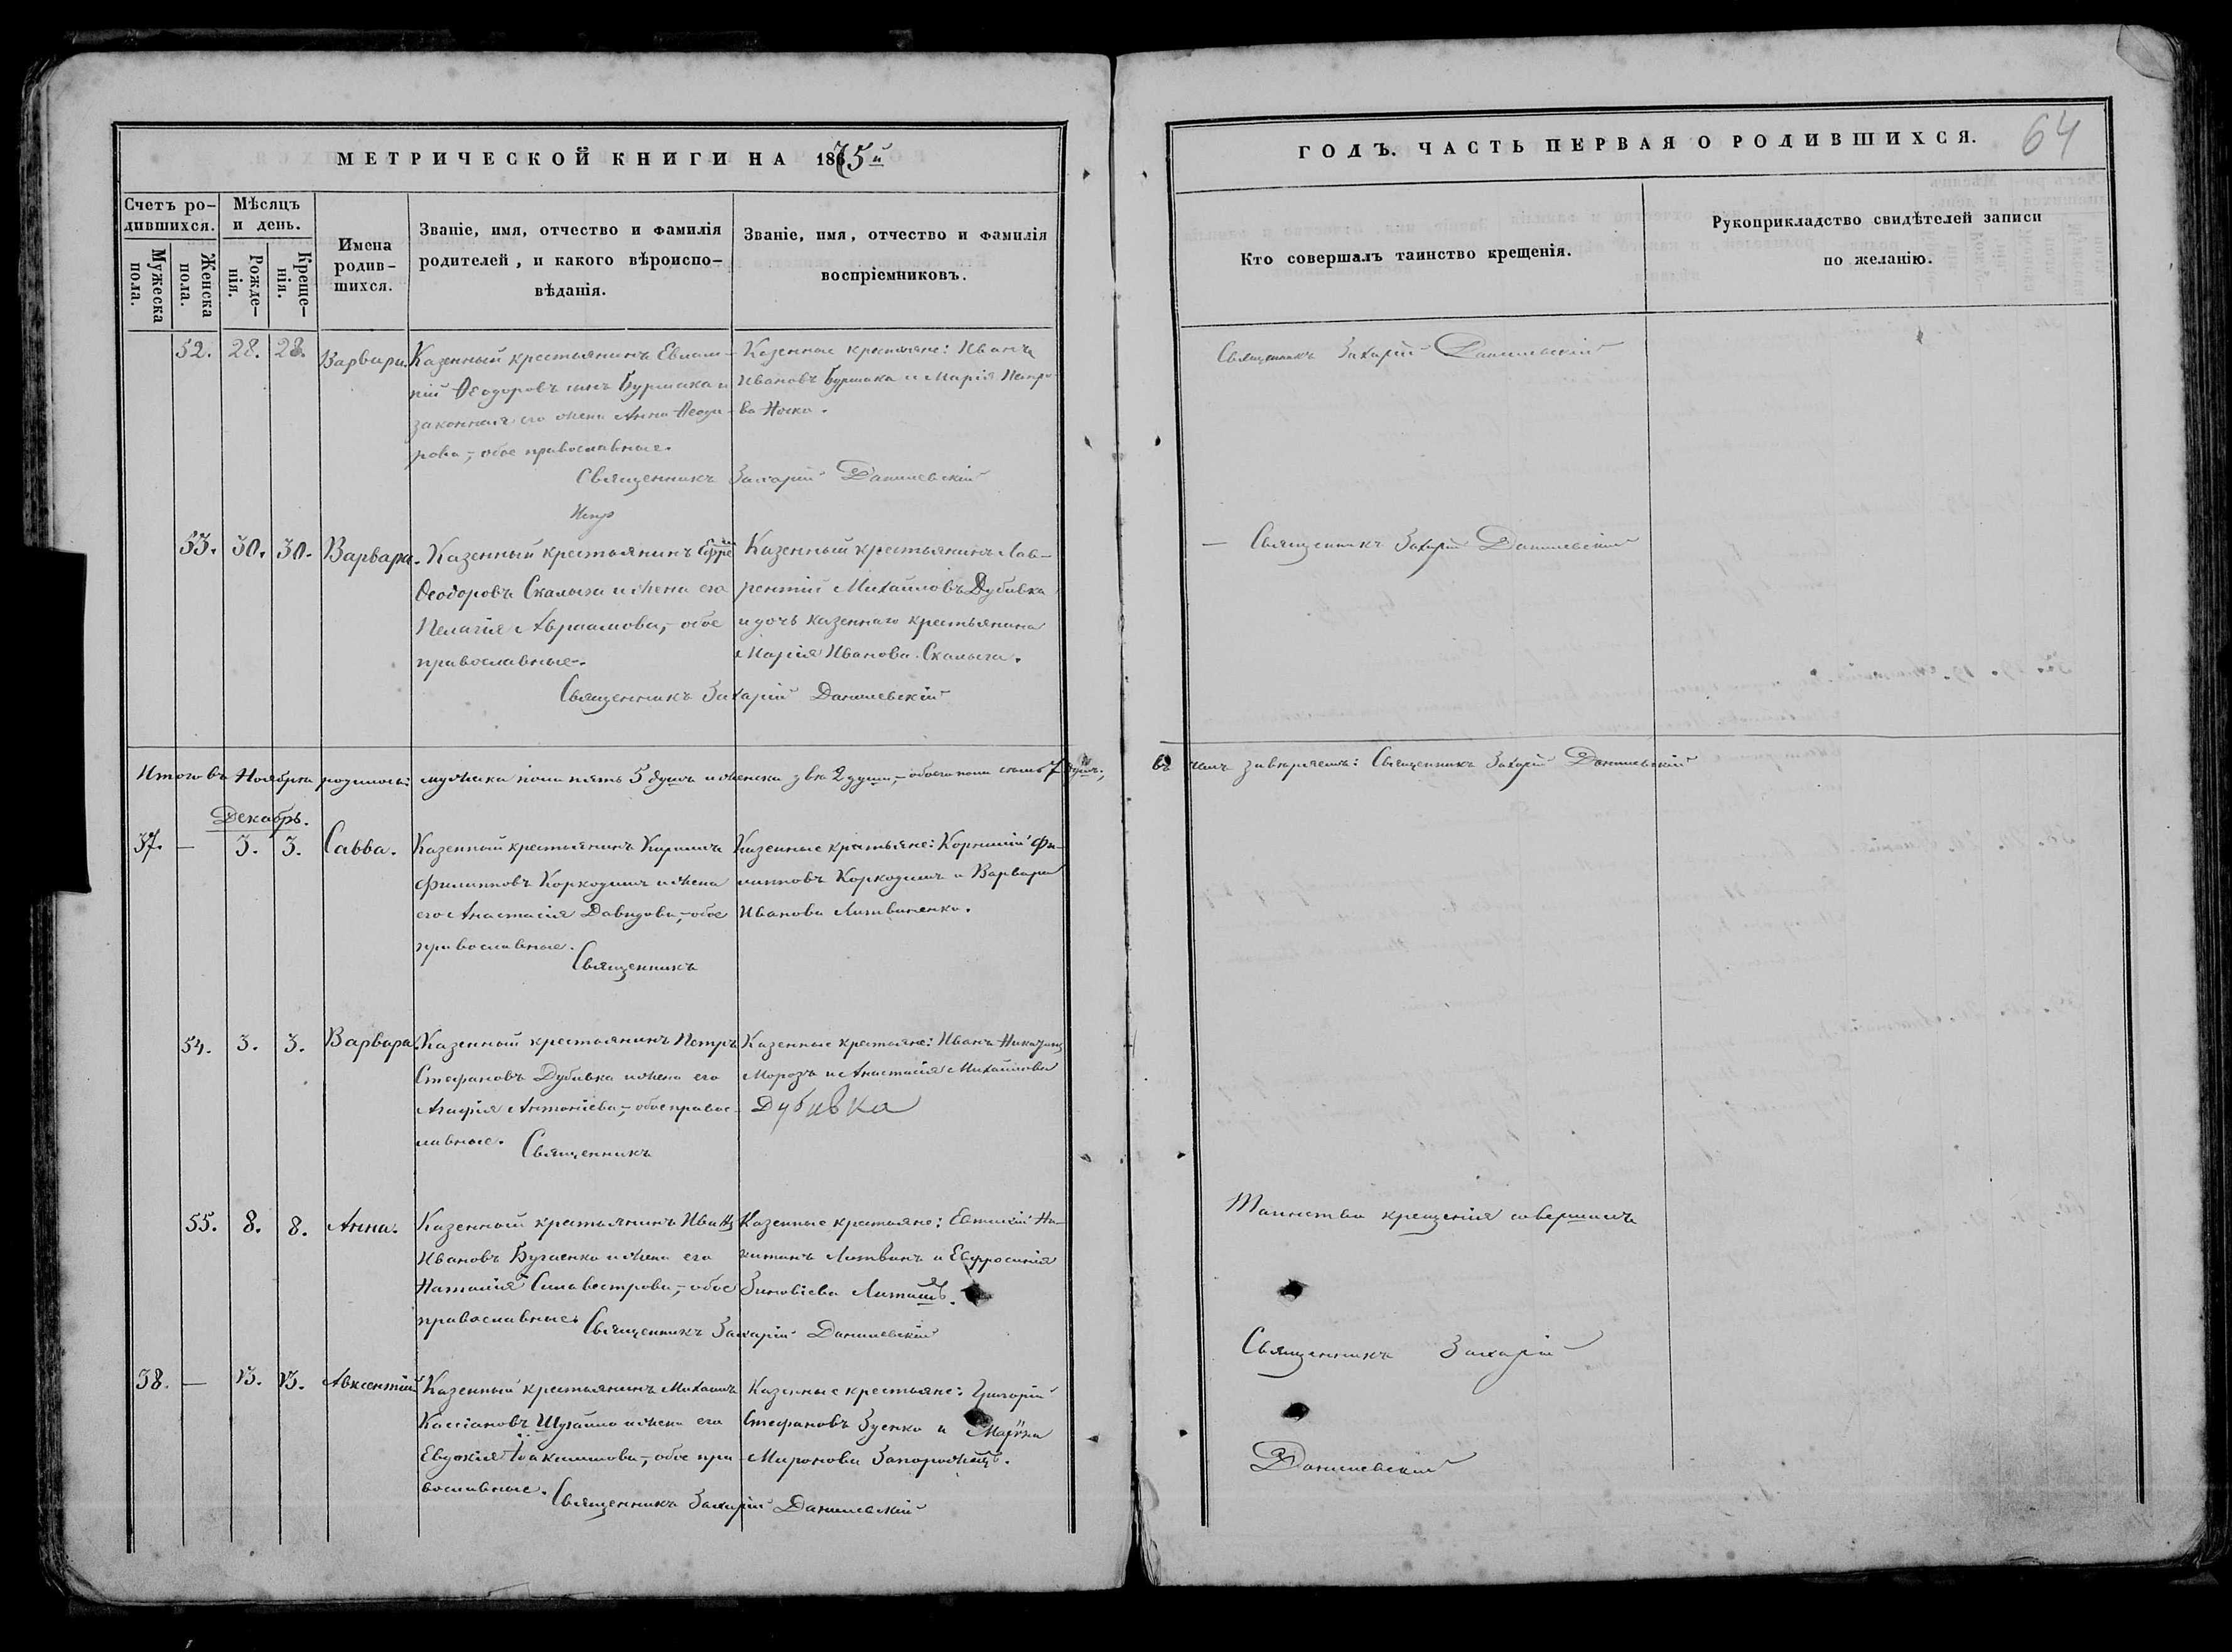 МЕТРИЧЕСКОЙ КНИГИ НА 1875й
Счетъ ро-
дившихся.
Мужеска
пола.
Женска
пола.
Мѣсяцъ
и день.
Рожде-
нія.
Креще-
нія.
Имена
родив-
шихся.
Званіе, имя, отчество и фамилія
родителей, и какого вѣроиспо-
вѣданія.
Званіе, имя, отчество и фамилія
воспріемниковъ.
52. 28. 28. Варвара.
Казенный крестьянинъ Евлам-
пій Ѳеодоровъ сынъ Бурмака и
законная его жена Анна Ѳеодо-
рова,- обое православные.
Казенные крестьяне: Иванъ
Ивановъ Бурмака и Марія Петро-
ва Носка.
Священникъ Захарій Данилевскій
53. 30. 30. Варвара.
Казенный крестьянинъ
Ѳеодоровъ Скалыга и жена его
Пелагія Авраамова,- обое
православные.
Казенный крестьянинъ Лав-
рентій Михаиловъ Дубивка
и дочь казеннаго крестьянина
Марія Иванова Скалыга.
Священникъ Захарій Данилевскій
Итого въ Ноябрѣ родилось: мужеска пола пять 5 душъ и женска двѣ 2 души,- обоего пола семь 7 душъ,
Декабрь.
37. — 3. 3. Савва.
Казенный крестьянинъ Кириллъ
Филипповъ Коркодилъ и жена
его Анастасія Давидова,- обое
православные.
Казенные крестьяне: Корнилій Фи-
липповъ Коркодилъ и Варвара
Иванова Литвиненко.
Священникъ
54. 3. 3. Варвара.
Казенный крестьянинъ Петръ
Стефановъ Дубивка и жена его
Агафія Антоніева,- обое правос-
лавные.
Казенные крестьяне: Иванъ
Морозъ и Анастасія Михайлова
Дубивка
Священникъ
55. 8. 8. Анна.
Казенный крестьянинъ Иванъ
Ивановъ Бугаенко и жена его
Наталія Сильвестрова,- обое
православные.
Казенные крестьяне: Евтихій Ни-
китинъ Литвинъ и Евфросинія
Зиновіева
Священникъ Захарій Данилевскій
38. — 13. 13. Авксентій
Казенный крестьянинъ Михаилъ
Кассіановъ Шугайло и жена его
Евдокія Іоакимова,- обое пра-
вославные.
Казенные крестьяне: Григорій
Стефановъ Зуенко и Марѳа
Миронова Запорожецъ.
Священникъ Захарій Данилевскій
ГОДЪ. ЧАСТЬ ПЕРВАЯ О РОДИВШИХСЯ.
64
Кто совершалъ таинство крещенія.
Рукоприкладство свидѣтелей записи
по желанію.
Священникъ Захарій Данилевскій
— Священникъ Захарій Данилевскій
въ чемъ завѣряемъ: Священникъ Захарій Данилевскій
Таинство крещенія совершилъ
Священникъ Захарій
Данилевскій